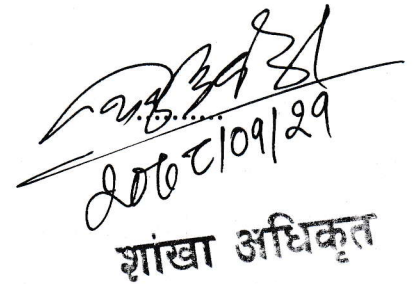 २०७८/०१/२१
शांखा अधिकृत